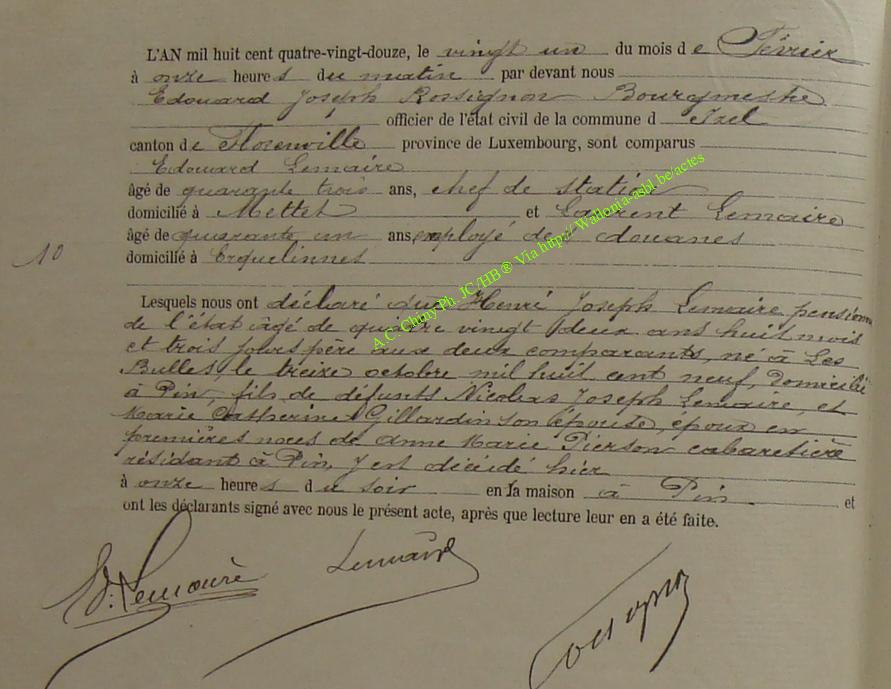 L'AN mil huit cent quatre-vingt-douze, le vingt un du mois de Février
à onze heures du matin par devant nous
Edouard Joseph Rossignon Bourgmestre
officier de l'état civil de la commune d Izel
canton de Florenville province de Luxembourg, sont comparus
Edouard Lemaire
âgé de quarante trois ans, chef de station
domicilié à Mettet et Laurent Lemaire
âgé de quarante un ans, employé des douanes
10
domicilié à Erquelinnes
Lesquels nous ont déclaré que Henri Joseph Lemaire, pensionné
de l'état âgé de quatre vingt deux ans huit mois
et trois jours père aux deux comparants, né à Les
Bulles, le treize octobre mil huit cent neuf, domicilié
à Pin, fils de défunts Nicolas Joseph Lemaire, et
Marie Catherine Gillardin son épouse, époux en
premières noces de Anne Marie Pierson cabaretière
résidant à Pin, y est décédé hier
à onze heures du soir en la maison à Pin et
ont les déclarants signé avec nous le présent acte, après que lecture leur en a été faite.
Ed. Lemaire Lemaire
Rossignon
A.C. Chiny Ph. JC/HB ® Via http// Wallonia-asbl.be/actes